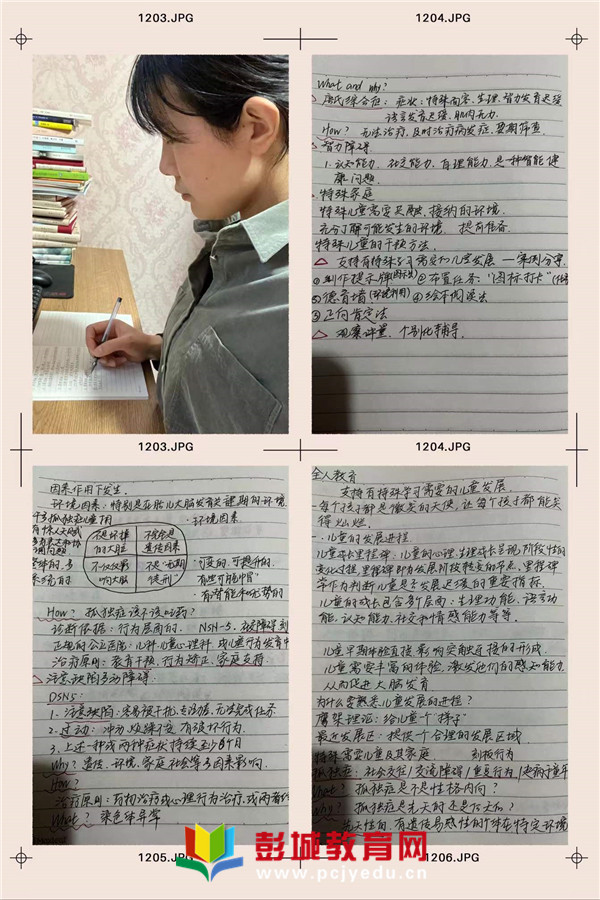 1203.JPG
1204.JPG
What and why?
唐氏综合症: 症状: 特殊面容、生理、智力发育迟缓
语言发育迟缓、肌肉无力.
How? 无法治疗, 及时治疗病发症, 早期筛查.
智力障碍
1. 认知能力、社交能力、自理能力, 是一种智能健
康问题.
特殊家庭
特殊儿童需要足融、接纳的环境.
充分了解可能发生的环境、提前准备.
特殊儿童的干预方法.
△ 支持有特殊学习需要的儿童发展 —案例分享
①制作提示牌(图示法) ②布置任务: “图标打卡”
③德育墙(环境利用) ④绘本阅读法
⑤正向肯定法
△ 观察评量、个别化辅导.
1203.JPG
1204.JPG
因素作用下发生.
环境因素: 特别是在胎儿大脑发育关键期的环境
环境因素.
不是坏掉
的大脑
不完全是
遗传因素
不仅仅影
响大脑
不是“无期
徒刑”
可变的, 可提升的.
有些可能“中官”
有潜能和优势的
How? 孤独症该不该吃药?
诊断依据: 行为层面的.
正规的公立医院: 儿科、儿童心理科
治疗原则: 教育干预、行为矫正、家庭支持
注意缺陷多动障碍:
DSM5:
1. 注意缺陷: 容易被干扰, 专注力差, 无法完成任务
2. 过动: 冲动、烦躁不安、有破坏行为.
3. 上述一种或两种症状持续至少6个月
Why? 遗传、环境、家庭社会等多因素影响.
How?
治疗原则: 药物治疗或心理行为治疗, 或两者
What? 染色体异常
全人教育
支持有特殊学习需要的儿童发展.
每个孩子都是微笑的天使, 让每个孩子都能笑
得灿烂.
一. 儿童的发展进程.
儿童成长里程碑: 儿童的心理、生理成长呈现阶段性的
变化过程, 里程碑即为发展阶段转变的节点, 里程碑
学作为判断儿童是否发展迟缓的重要指标.
儿童的成长包含多个层面: 生理功能、语言功
能、认知能力、社交和情感能力等等.
儿童早期体验直接影响突触连接的形成.
儿童需要丰富的体验, 激发他们的感知能力
从而促进大脑发育
为什么要熟悉儿童发展的进程?
鹰架理论: 给儿童个“梯子”
最近发展区: 提供个合理的发展区域
特殊需要儿童及其家庭
刻板行为
孤独症: 社会交往/交流障碍/重复行为
What? 孤独症是不是性格内向?
Why? 孤独症是先天的还是后天的?
先天性的, 有遗传易感性的个体在特定环境
1205.JPG
1206.JPG
彭城教育网
www.pcjyedu.cn